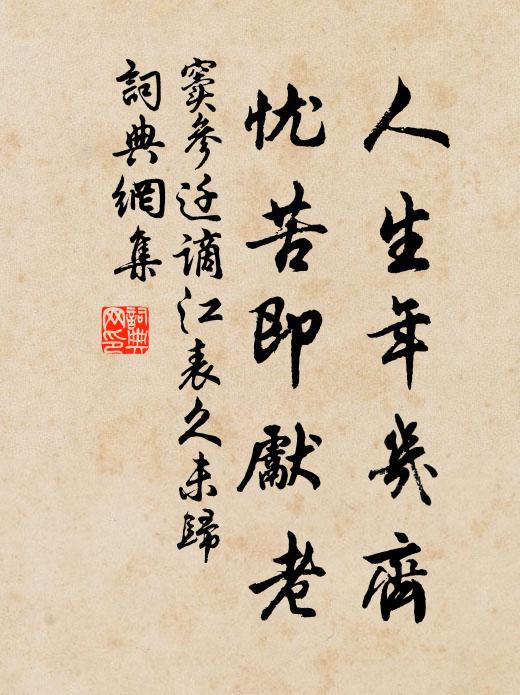 人生年幾齊
忧苦即獻老
窦參迁謫江表久未歸
詞典網集
詞典网印